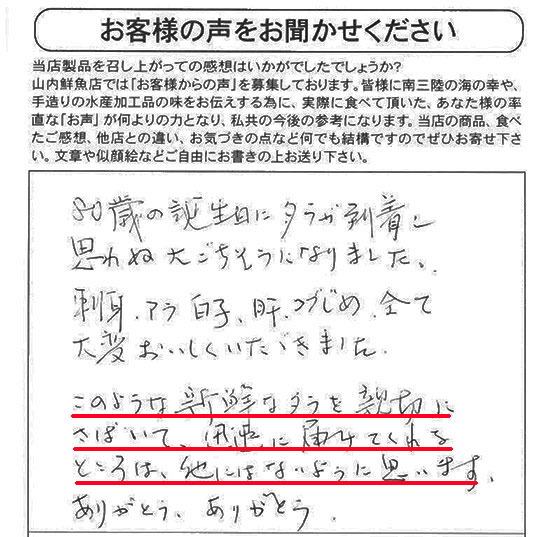 お客様の声をお聞かせください
当店製品を召し上がっての感想はいかがでしたでしょうか?
山内鮮魚店では「お客様からの声」を募集しております。皆様に南三陸の海の幸や、
手造りの水産加工品の味をお伝えする為に、実際に食べて頂いた、あなた様の率
直な「お声」が何よりの力となり、私共の今後の参考になります。当店の商品、食べ
たご感想、他店との違い、お気づきの点など何でも結構ですのでぜひお寄せ下さ
い。文章や似顔絵などご自由にお書きの上お送り下さい。
80歳の誕生日にタラが到着し
思わぬ大ごちそうになりました。
刺身、アラ、白子、肝、こぶじめ、全て
大変おいしくいただきました。
このような新鮮なタラを親切に
さばいて、迅速に届けてくれる
ところは、他にはないように思います。
ありがとう、ありがとう.